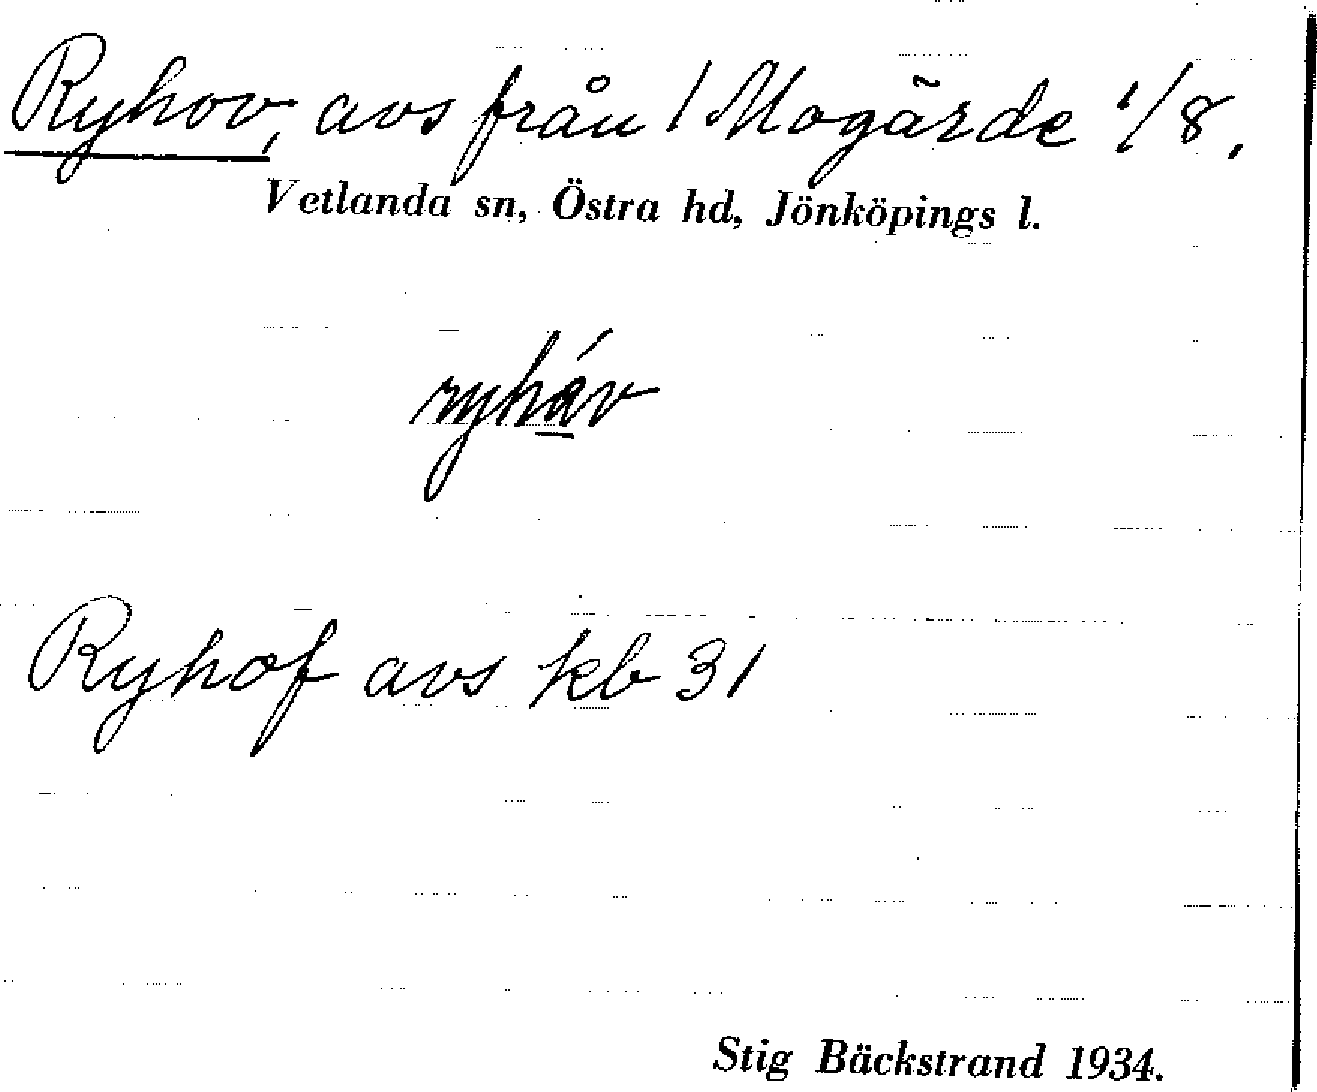 Ryhov, avs från 1 Mogärde 1/8,
Vetlanda sn, Östra hd, Jönköpings l.
ryháv
Ryhof avs kb 31
Stig Bäckstrand 1934.